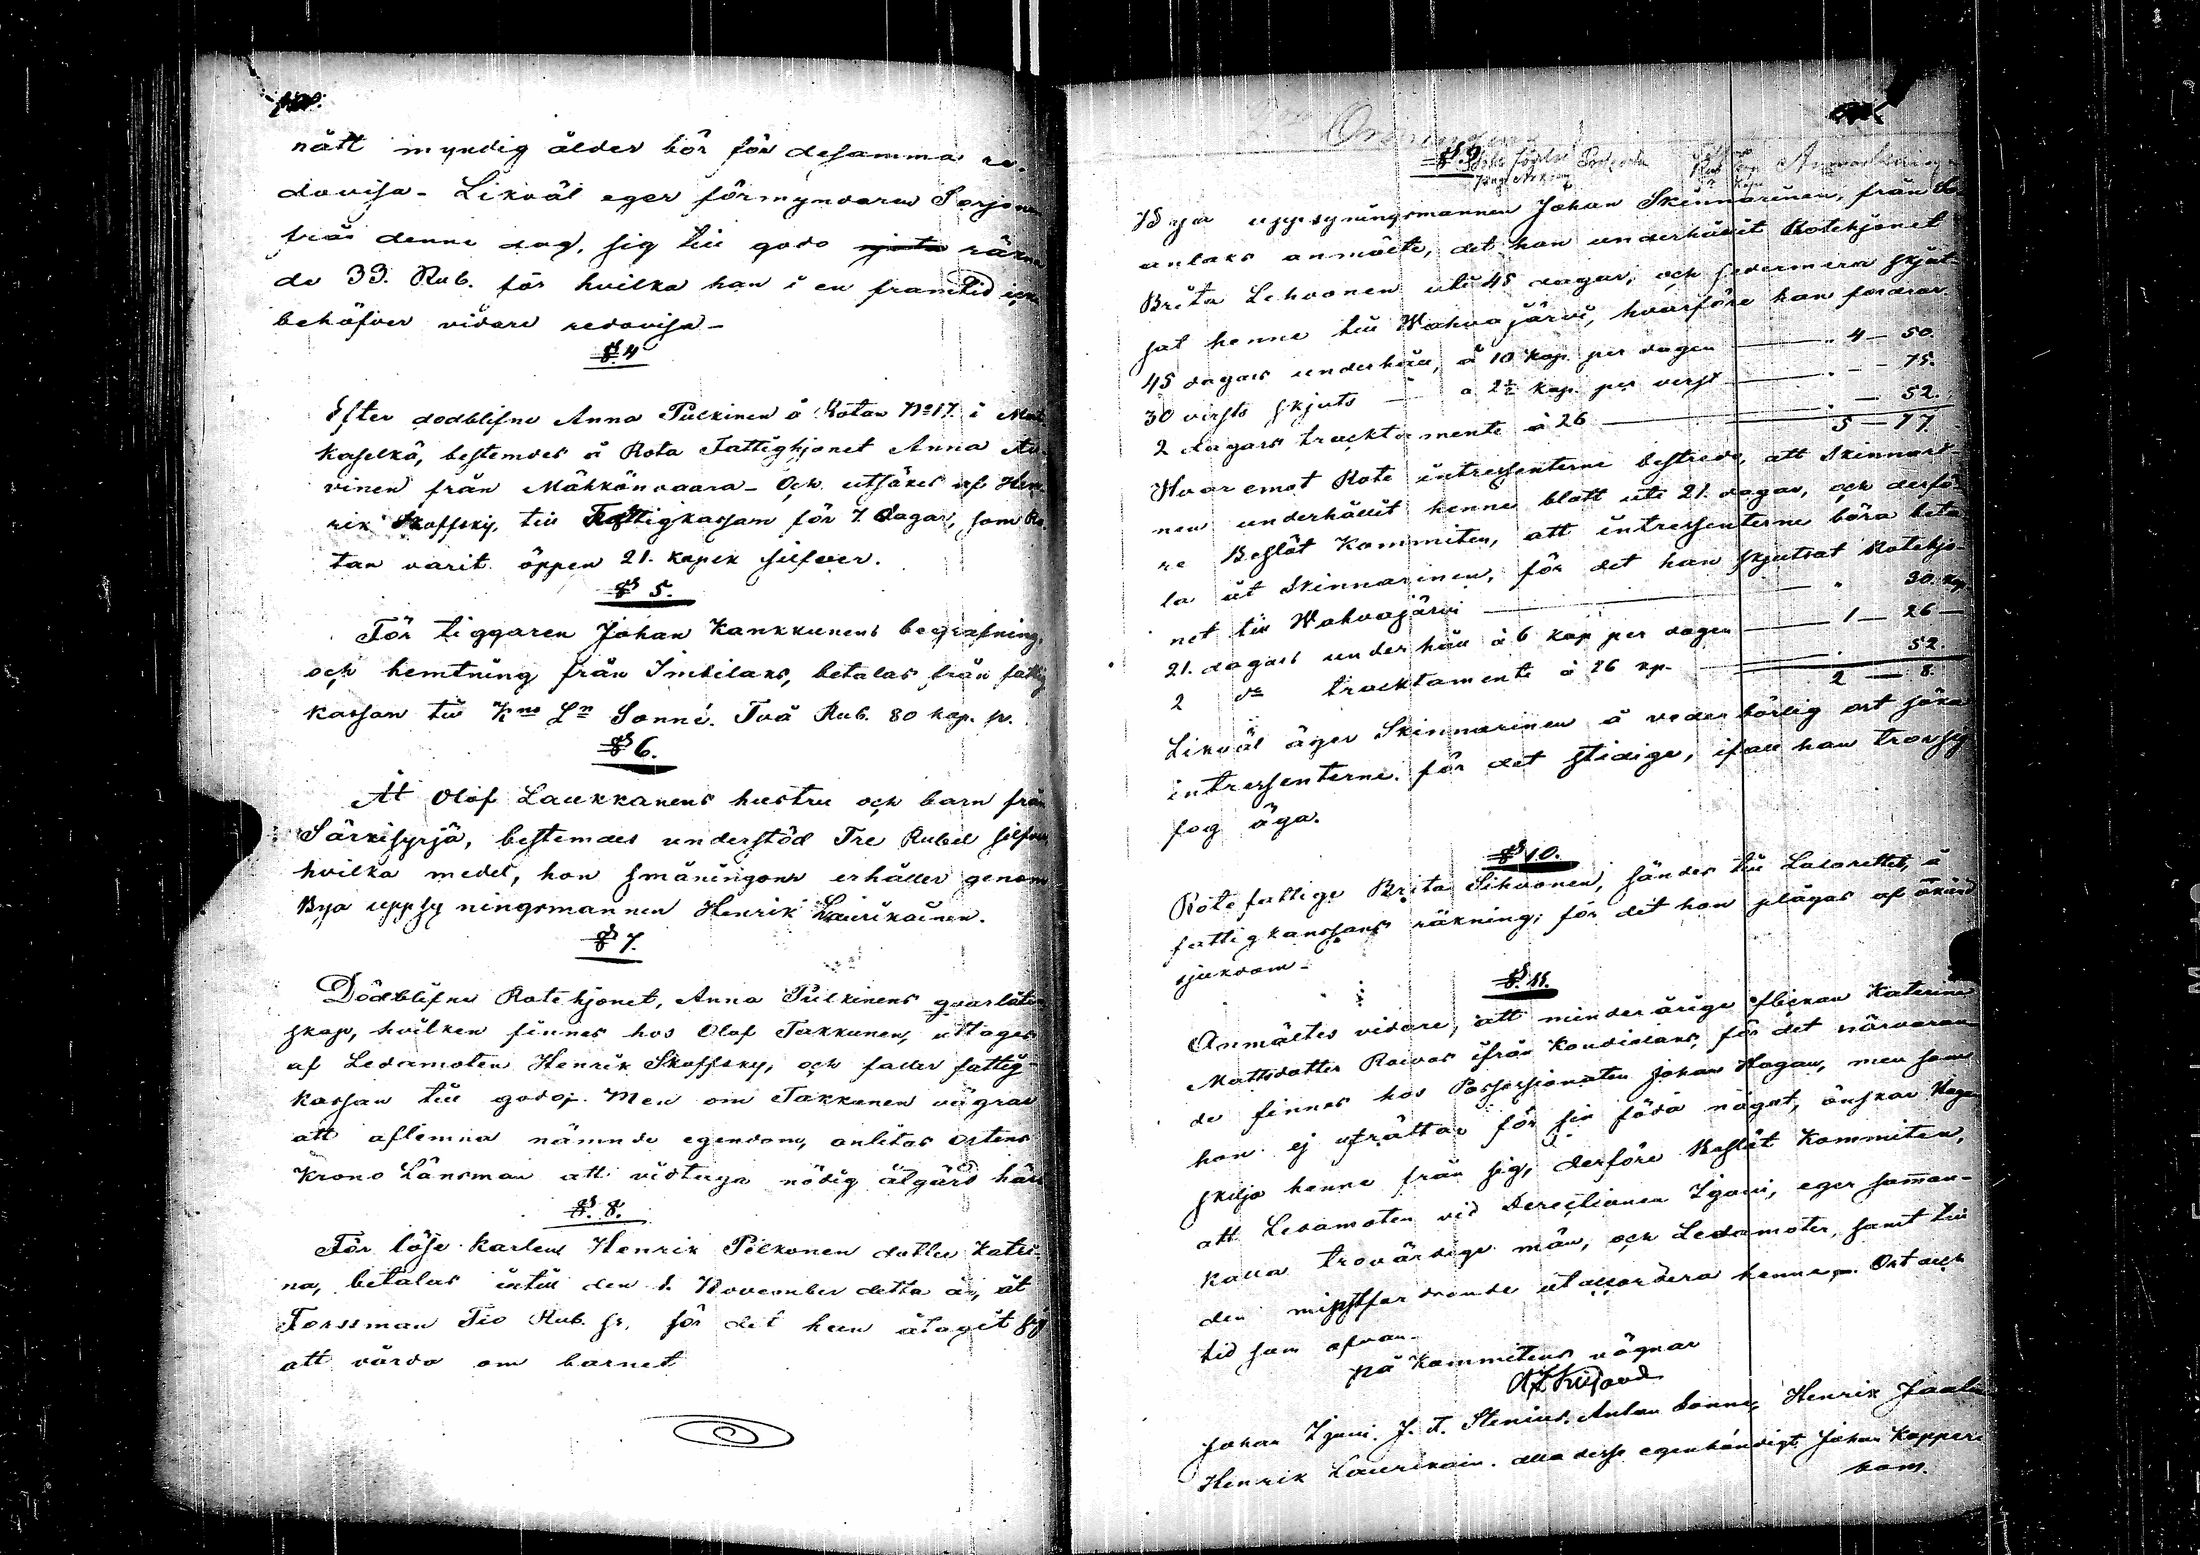 nått myndig ålder bör för desamma re-
dovisa - Likväl eger förmyndaren Sorjonen
från denne dag, sig till godo räkna
de 33. Rub. för hvilka han i en framtid icke
behöfver vidare redovisa -
§. 4
Efter dödblifne Anna Pulkinen å Rotan No 17. i
kaselkä, bestemdes å Rota Fattighjonet Anna
vinen från Mähkönvaara - Och utsökes af Hen-
rik Skoffsky, till Fattigkassam för 7. dagar, som Ro-
tan varit öppen 21. kopek silfver.
§ 5.
För tiggaren Johan Kankkunens begrafning,
och hemtning från Imbilaks, betalas från fattig
kassan till Kno Ln Sonné. Två Rub. 80 kop. sr.
§ 6.
At Olof Laukkanens hustru och barn från
Särkisyrjä, bestemdes understöd Tre Rubel silfver
hvilka medel, hon småningom erhåller genom
Bya uppsyningsmannen Henrik Laurikainen.
§ 7.
Dödblifne Rotehjonet, Anna Pulkinens qvarlåten
skap, hvilken finnes hos Olof Takkunen, uttages
af Ledamoten Henrik Skoffsky, och faller fattig-
kassan till godo. Men om Takkunen vägrar
att aflemna nämnde egendom, anlitas ortens
Krono Länsman att vidtaga nödig åtgärd häri
§. 8.
För löse karlens Henrik Pelkonen dotter Katri-
na, betalas intill den 1. November detta år, åt
Forssman Tio Rub. sr, för det han åtagit sig
att vårda om barnet
§. 9.
Bya uppsyningsmannen Johan Skinnarinen, från
anlaks anmälte, det han underhållit Rotehjonet
Brita Lehvonen uti 45 dagar, och sedermera skjut-
sat henne till Wahvajärvi, hvarföre han fordrar.
45 dagars underhåll, à 10 kop. per dagen 4 - 50.
30 virsts skjuts à 2½ kop. per verst - 75.
2 dagars tracktamente à 26 - 52.
5 - 77.
Hvaremot Rote intressenterne bestredo, att Skinnari-
nen underhållit henne blott uti 21. dagar, och derfö-
re Beslöt Kommiten, att intressenterne böra beta-
la åt Skinnarinen, för det han skjutsat Rotehjo-
net till Wahvajärvi 30. kop
21. dagars underhåll à 6 kop per dagen 1 - 26 -
2 do tracktamente à 26 kp. 52.
2 - 8.
Likväl äger Skinnarinen å vederbörlig ort söka
intressenterne för det stridige, ifall han tror sig
fog äga.
§ 10.
Rotefattige Brita Sihvonen, sändes till Lasarettet, å
fattigkassans räkning, för det hon plågas af
sjukdom -
§. 11.
Anmältes vidare, att minderårige flickan Katerina
Mattsdotter Raivas ifrån Koudialaks, för det närvaran-
de finnes hos Possessionaten Johan Hagan, men som
hon ej uträttar för sin föda något, önskar Hagan
skilja henne från sig, derföre Beslöt Kommiten,
att Ledamoten vid Derectionen Zgoni, eger samman-
kalla trovärdige män, och Ledamoter, samt till
den minstfordrande utackordera henne. Ort och
tid som ofvan.
på Kommitens vägnar
Johan Zgoni. J. F. Stenius. Anton Sonne, Henrik
Henrik Laurikain. alla desse egenhändigt Johan
bom.